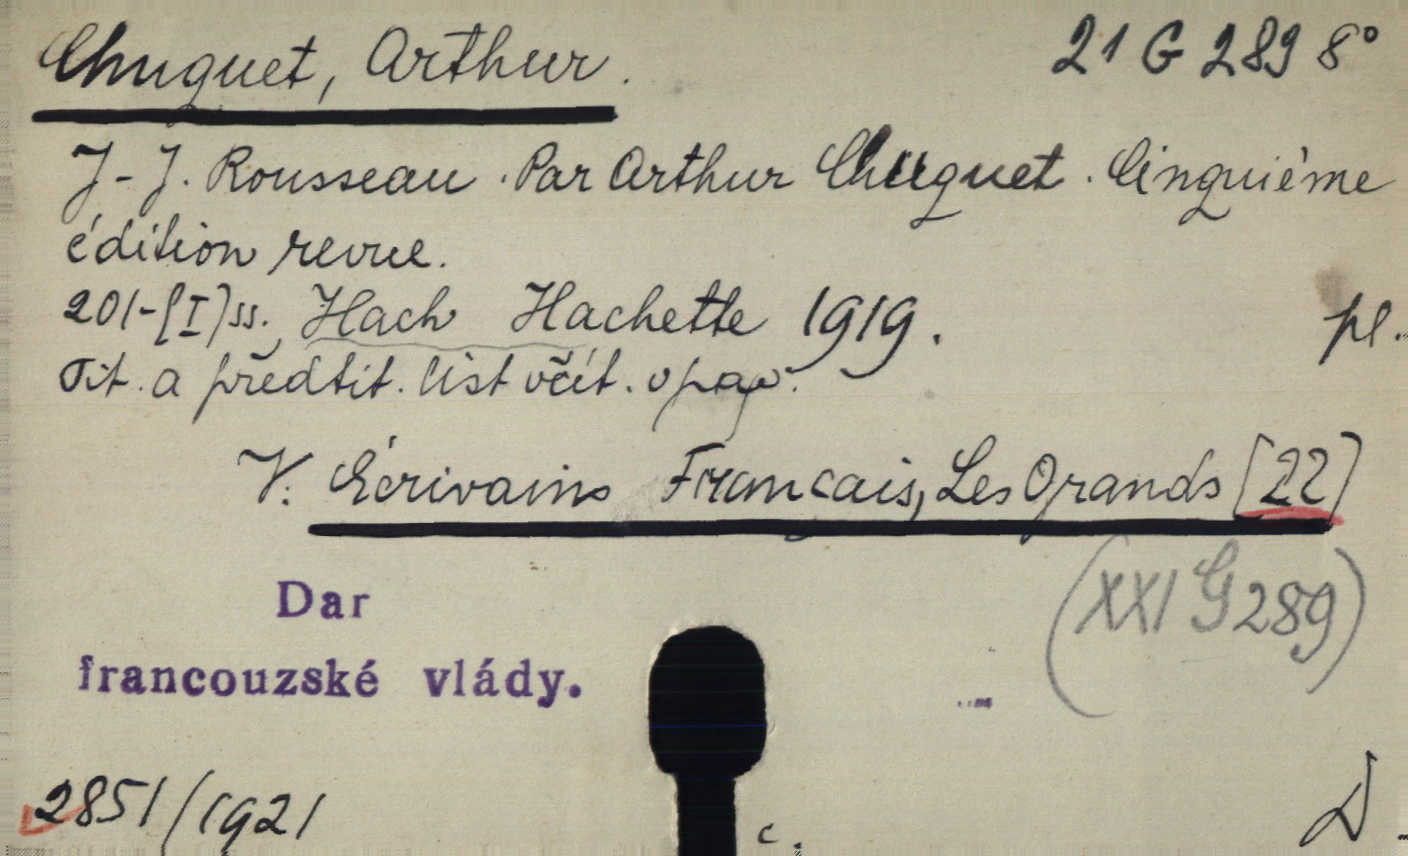 Chuquet, Arthur. 21 G 289 8°
J-J. Rousseau. Par Arthur Chuquet. Cinquième
édition revue.
201-[I] ss. Hach Hachette 1919. pl.
Tit. a předtit. list včít. v pag.
V. Écrivains Francais, Les Grands [22]
(XXI G 289)
Dar
francouzské vlády.
2851/1921
c.
D